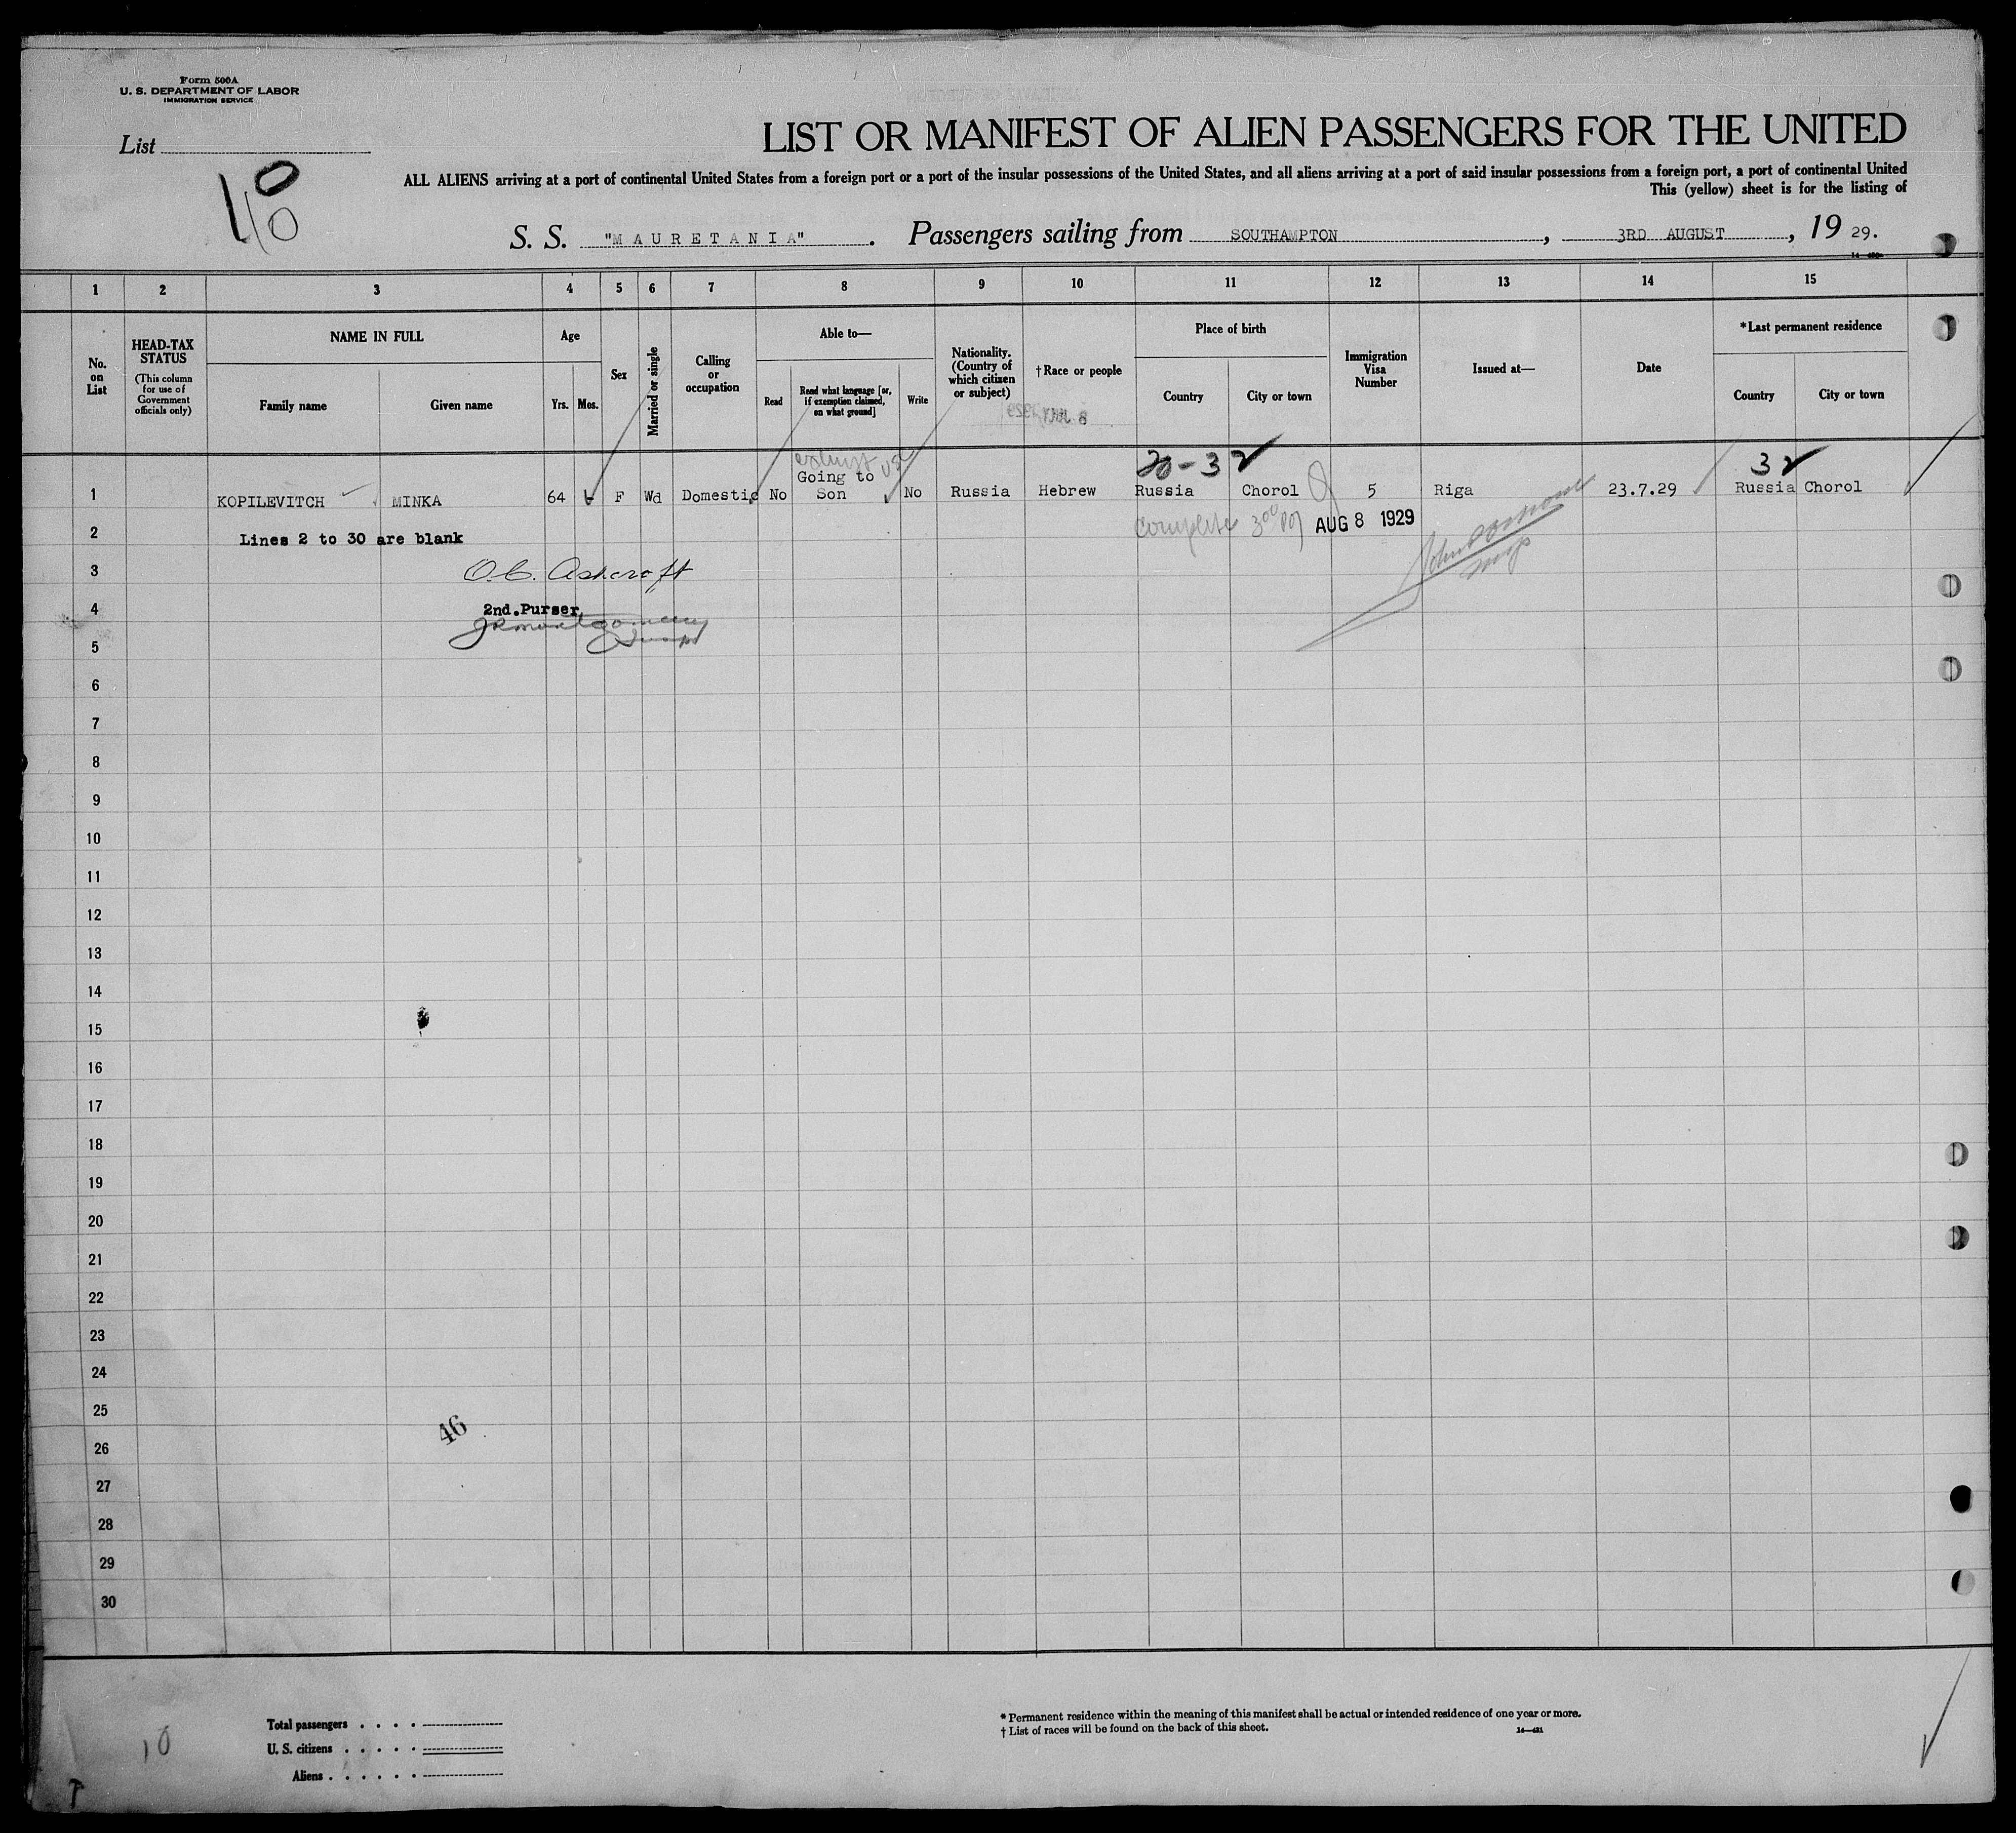 Form 500A
U. S. DEPARTMENT OF LABOR
IMMIGRATION SERVICE
List
10
10
LIST OR MANIFEST OF ALIEN PASSENGERS FOR THE UNITED
ALL ALIENS arriving at a port of continental United States from a foreign port or a port of the insular possessions of the United States, and all aliens arriving at a port of said insular possessions from a foreign port, a port of continental United
This (yellow) sheet is for the listing of
S. S. "MAURETANIA". Passengers sailing from SOUTHAMPTON, 3RD AUGUST, 19 29.
1 2 3 4 5 6 7 8 9 10 11 12 13 14 15
No. on List
HEAD-TAX STATUS
(This column for use of Government officials only)
NAME IN FULL
Family name Given name
Age
Yrs. Mos.
Sex
Married or single
Calling or occupation
Able to—
Read Read what language [or, if exemption claimed, on what ground] Write
Nationality. (Country of which citizen or subject)
†Race or people
Place of birth
Country City or town
Immigration Visa Number
Issued at—
Date
*Last permanent residence
Country City or town
20-32 32
1 KOPILEVITCH MINKA 64 F Wd Domestic No Going to Son No Russia Hebrew Russia Chorol 5 Riga 23.7.29 Russia Chorol
2 Lines 2 to 30 are blank complete 3⁰⁰ AUG 8 1929
3 O. C. Ashcroft
4 2nd.Purser,
JR Montgomery
5
6
7
8
9
10
11
12
13
14
15
16
17
18
19
20
21
22
23
24
25
46
26
27
28
29
30
Total passengers . . . .
U. S. citizens . . . . .
Aliens . . . . . .
10
* Permanent residence within the meaning of this manifest shall be actual or intended residence of one year or more.
† List of races will be found on the back of this sheet.